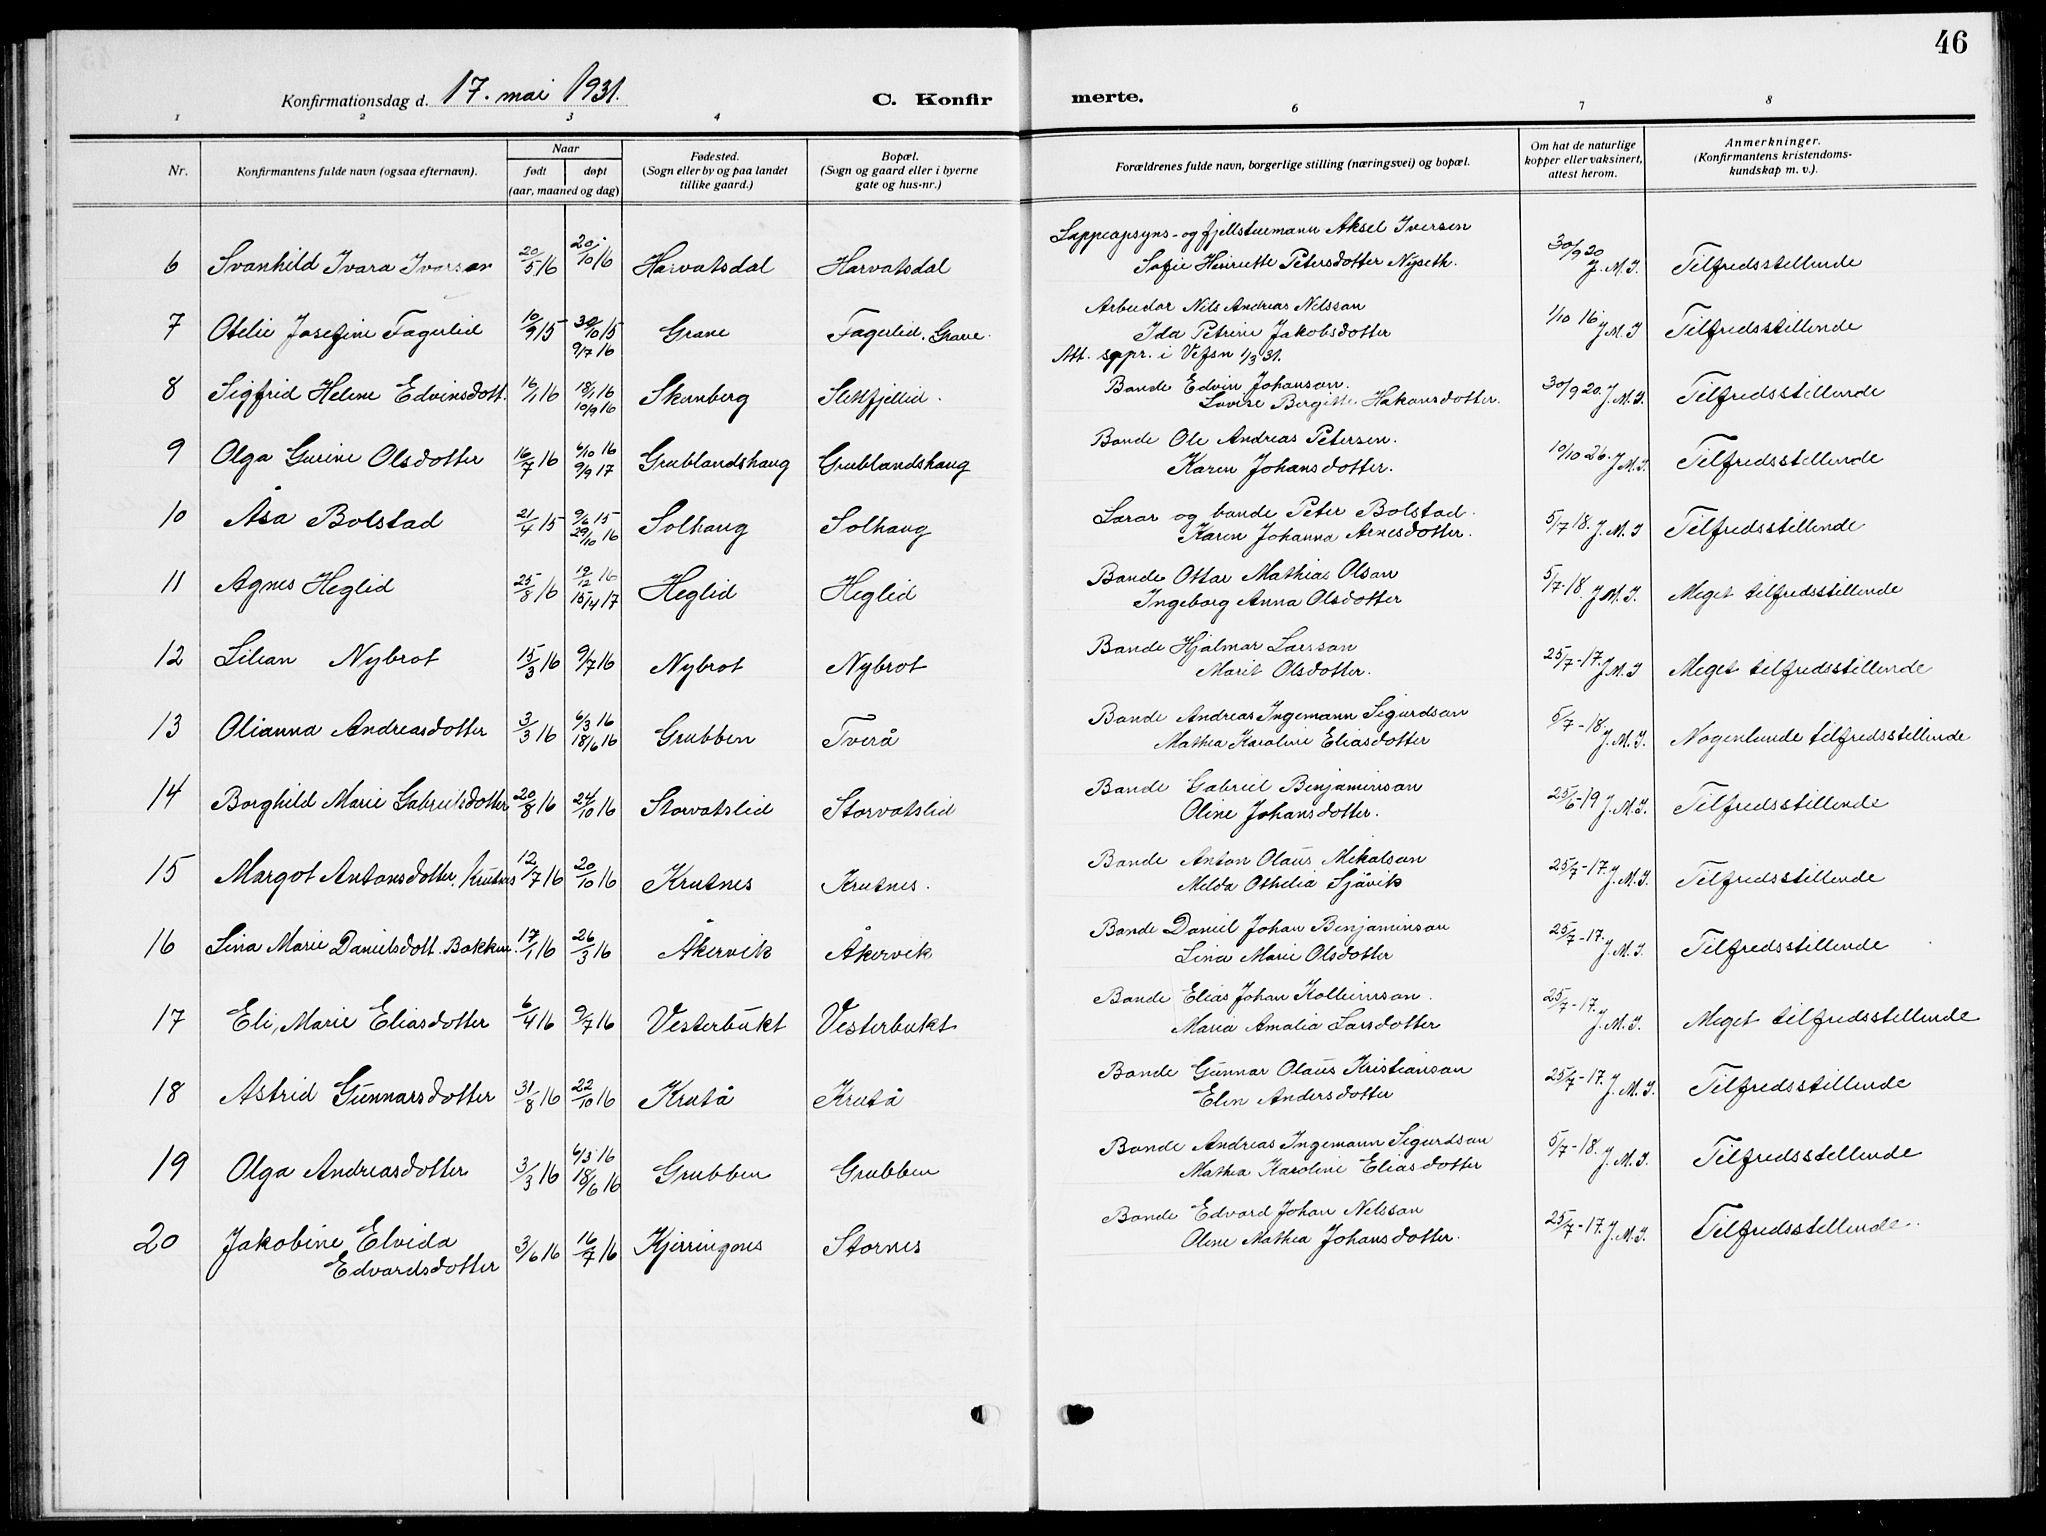 46
Konfirmationsdag d. 17. mai 1931.
C. Konfir merte.
1 2 3 4 6 7 8
Nr. Konfirmantens fulde navn (ogsaa efternavn). Naar født døpt (aar, maaned og dag) Fødested. (Sogn eller by og paa landet tillike gaard.) Bopæl. (Sogn og gaard eller i byerne gate og hus-nr.) Forældrenes fulde navn, borgerlige stilling (næringsvei) og bopæl. Om hat de naturlige kopper eller vaksinert, attest herom. Anmerkninger. (Konfirmantens kristendoms-kundskap m. v.).
6 Svanhild Ivara Iversen 20/5 16 20/10 16 Harvatsdal Harvatsdal Lappeopsyns- og fjellstuemann Aksel Iversen
Sofie Henriette Petersdotter Nyseth. 30/9 20 J.M.J. Tilfredsstillende
7 Otelie Josefine Fagerlid 10/9 15 30/10 15 Grane Fagerlid. Grane. Arbeidar Nils Andreas Nilsson
9/7 16 Ida Petrine Jakobsdotter 1/10 16 J.M.J Tilfredsstillende
Att. sgpr. i Vefsn 1/3 31.
8 Sigfrid Helene Edvinsdott. 16/1 16 18/1 16 10/9 16 Skanberg Slettfjellid. Bonde Edvin Johanson.
Lovise Bergitte Hakonsdotter. 30/9 20. J.M.J. Tilfredsstillende
9 Olga Gurine Olsdotter 16/7 16 6/10 16 9/9 17 Grublandshaug Grublandshaug Bonde Ole Andreas Petersen.
Karen Johansdotter. 19/10 26. J.M.J. Tilfredsstillende
10 Åsa Bolstad 21/4 15 9/6 15 29/10 16 Solhaug Solhaug Lærar og bonde Peter Bolstad.
Karen Johanna Arnesdotter. 5/7 18. J.M.J Tilfredsstillende
11 Agnes Heglid 25/8 16 19/12 16 15/4 17 Heglid Heglid Bonde Ottar Mathias Olson
Ingeborg Anna Olsdotter 5/7-18. J.M.J. Meget tilfredsstillende
12 Lilian Nybrot 15/3 16 9/7 16 Nybrot Nybrot Bonde Hjalmar Larsson
Marit Olsdotter. 25/7-17. J.M.J Meget tilfredsstillende
13 Olianna Andreasdotter 3/3 16 6/3 16 18/6 16 Grubben Tverå Bonde Andreas Ingemann Sigurdson
Mathea Karoline Eliasdotter 5/7-18 J.M.J. Nogenlunde tilfredsstillende
14 Borghild Marie Gabrielsdotter 20/8 16 24/10 16 Storvatslid Storvatslid Bonde Gabriel Benjaminson
Oline Johansdotter. 25/6-19 J.M.J. Tilfredsstillende
15 Margot Antonsdotter, Krutnes 12/7 16 20/10 16 Krutnes Krutnes. Bonde Anton Olaus Mikalson
Melda Othelia Sjåvik 25/7-17. J.M.J. Tilfredsstillende
16 Lina Marie Danielsdott. Bakken. 17/1 16 26/3 16 Åkervik Åkervik Bonde Daniel Johan Benjaminson
Lina Marie Olsdotter 25/7-17. J.M.J. Tilfredsstillende
17 Eli, Marie Eliasdotter 6/4 16 9/7 16 Vesterbukt Vesterbukt Bonde Elias Johan Kolbeinson.
Maria Amalia Larsdotter 25/7-17. J.M.J. Meget tilfredsstillende
18 Astrid Gunnarsdotter 31/8 16 22/10 16 Krutå Krutå Bonde Gunnar Olaus Kristianson
Elen Andersdotter 25/7-17. J.M.J. Tilfredsstillende
19 Olga Andreasdotter 3/3 16 6/3 16 18/6 16 Grubben Grubben Bonde Andreas Ingemann Sigurdson
Mathea Karoline Eliasdotter 5/7-18. J.M.J. Tilfredsstillende
20 Jakobine Elvida
Edvardsdotter 3/6 16 16/7 16 Kjerringnes Stornes Bonde Edvard Johan Nilsson
Oline Mathea Johansdotter. 25/7-17. J.M.J. Tilfredsstillende.